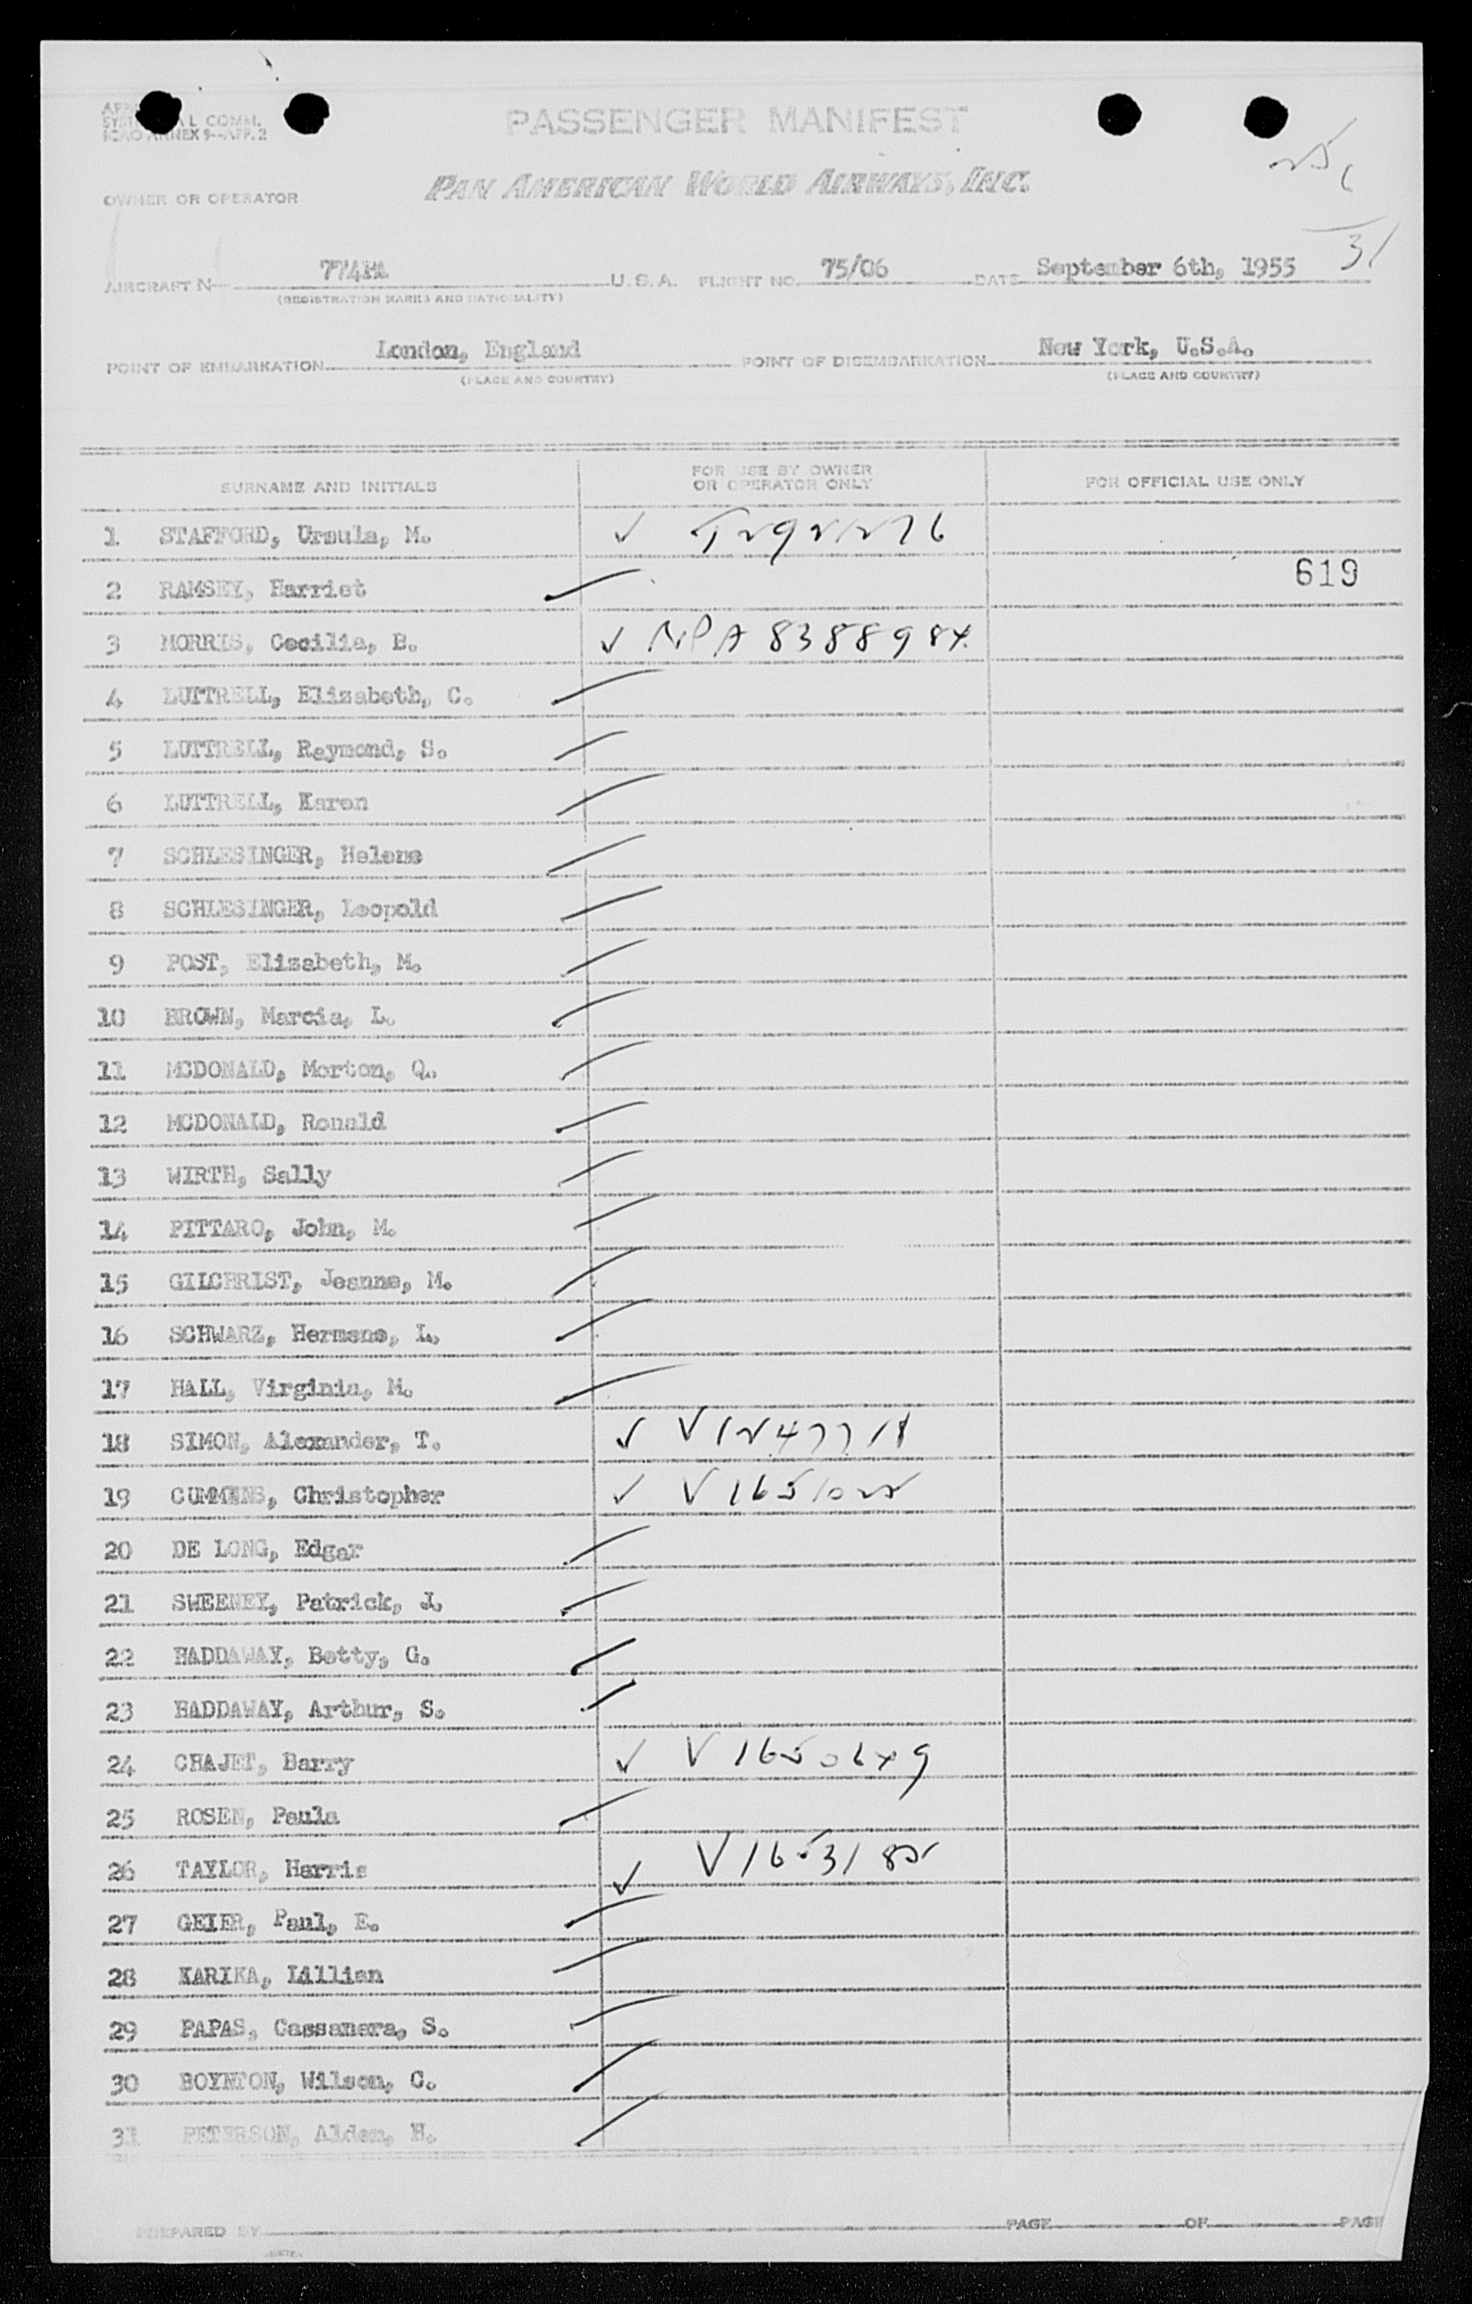 PASSENGER MANIFEST
ICAO ANNEX 9-APP. 2
OWNER OR OPERATOR
PAN AMERICAN WORLD AIRWAYS, INC.
31
AIRCRAFT N 774PA U.S.A. FLIGHT NO. 75/06 DATE September 6th, 1955
(REGISTRATION MARKS AND NATIONALITY)
POINT OF EMBARKATION London, England POINT OF DISEMBARKATION New York, U.S.A.
(PLACE AND COUNTRY) (PLACE AND COUNTRY)
SURNAME AND INITIALS FOR USE BY OWNER OR OPERATOR ONLY FOR OFFICIAL USE ONLY
1 STAFFORD, Ursula, M. ✓
619
2 RAMSEY, Harriet
3 MORRIS, Cecilia, B. ✓
4 LUTTRELL, Elizabeth, C.
5 LUTTRELL, Raymond, S.
6 LUTTRELL, Karen
7 SCHLESINGER, Helene
8 SCHLESINGER, Leopold
9 POST, Elizabeth, M.
10 BROWN, Marcia, L.
11 MCDONALD, Morton, Q.
12 MCDONALD, Ronald
13 WIRTH, Sally
14 PITTARO, John, M.
15 GILCHRIST, Jeanne, M.
16 SCHWARZ, Hermene, L.
17 HALL, Virginia, M.
18 SIMON, Alexander, T. ✓
19 CUMMENS, Christopher ✓ V1651022
20 DE LONG, Edgar
21 SWEENEY, Patrick, J.
22 HADDAWAY, Betty, G.
23 HADDAWAY, Arthur, S.
24 CHAJET, Barry ✓
25 ROSEN, Paula
26 TAYLOR, Harris ✓ V1653182
27 GEIER, Paul, E.
28 KARIKA, Lillian
29 PAPAS, Cassanera, S.
30 BOYNTON, Wilson, C.
31 PETERSON, Alden, H.
PREPARED BY PAGE OF PAGE